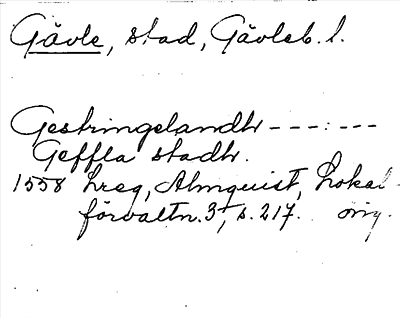 Gävle, stad, Gävleb. l.
Gestringelandh ---:---
Geffla stadh.
1558 Lreg, Almquist, Lokal-
förvaltn. 3, s. 217. orig.